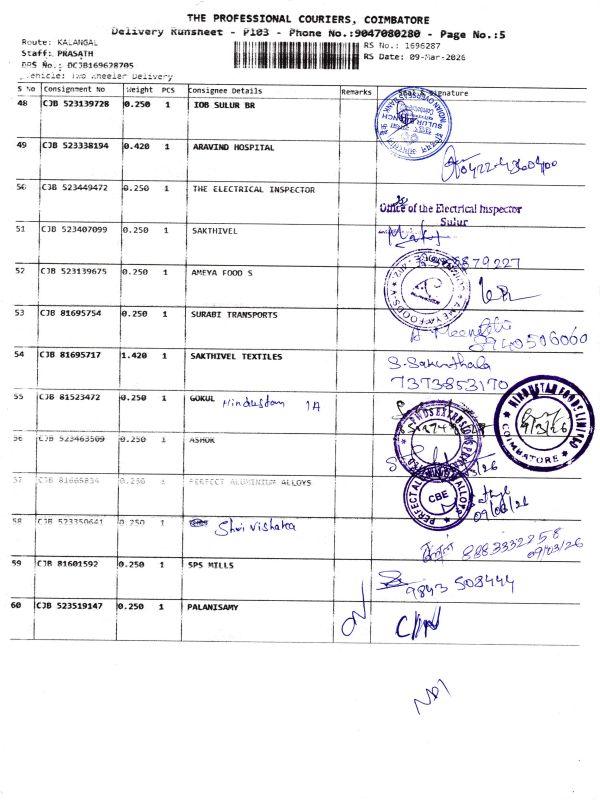 THE PROFESSIONAL COURIERS, COIMBATORE
Delivery Runsheet - P103 - Phone No.:9047080280 - Page No.:5
Route: KALANGAL
RS No.: 1696287
Staff: PRASATH
RS Date: 09-Mar-2026
DRS No.: DCJB169628705
Vehicle: Two Wheeler Delivery
S No Consignment No Weight PCS Consignee Details Remarks Seal & Signature
48 CJB 523139728 0.250 1 IOB SULUR BR
49 CJB 523338194 0.420 1 ARAVIND HOSPITAL
0422-4360400
50 CJB 523449472 0.250 1 THE ELECTRICAL INSPECTOR
Office of the Electrical Inspector
Sulur
51 CJB 523407099 0.250 1 SAKTHIVEL
52 CJB 523139675 0.250 1 AMEYA FOOD S
53 CJB 81695754 0.250 1 SURABI TRANSPORTS
8940506060
54 CJB 81695717 1.420 1 SAKTHIVEL TEXTILES
S. Sakunthala
7373853170
55 CJB 81523472 0.250 1 GOKUL Hindustan 1A
HINDUSTAN FOODS LIMITED
9/3/26
COIMBATORE
56 CJB 523463509 0.250 1 ASHOK
57 CJB 81665834 0.250 1 PERFECT ALUMINIUM ALLOYS
PERFECT ALUMINIUM ALLOYS
CBE
09/03/26
58 CJB 523350641 0.250 1 Shri Vishaka
8883332258
09/03/26
59 CJB 81601592 0.250 1 SPS MILLS
9843 508444
60 CJB 523519147 0.250 1 PALANISAMY